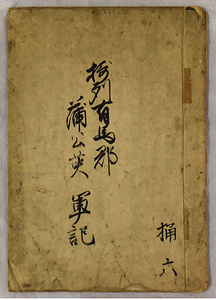 摂列有馬郡
蒲公英 軍記
桶六